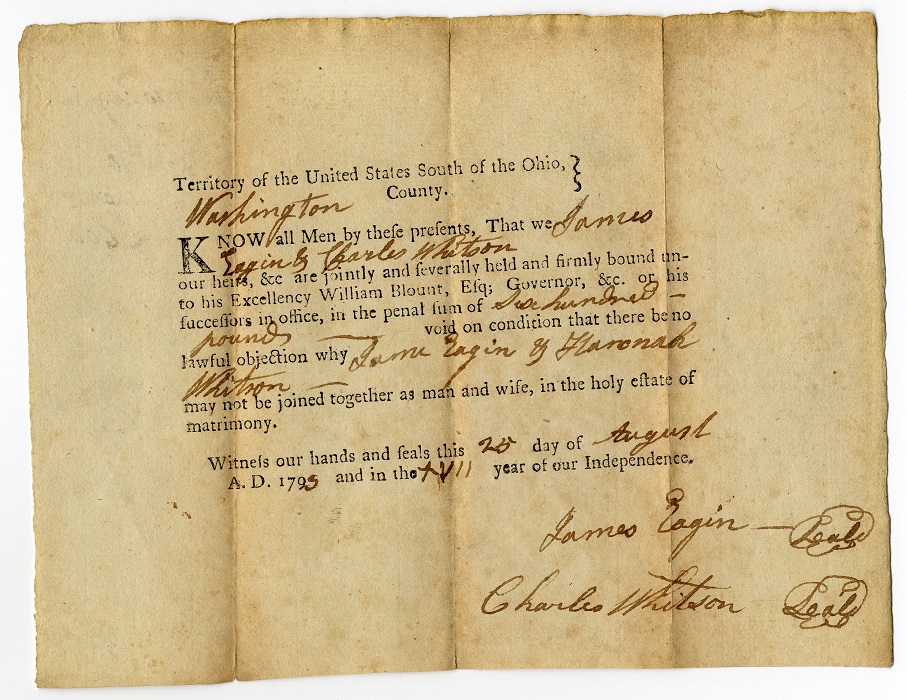 Territory of the United States South of the Ohio, }
County.
Washington
KNOW all Men by theſe preſents, That we James
Eagin & Charles Whitson
our heirs, &c are jointly and ſeverally held and firmly bound un-
to his Excellency William Blount, Eſq; Governor, &c. or his
ſucceſſors in office, in the penal ſum of Six hundred –
pounds — void on condition that there be no
lawful objection why James Eagin & Hannah
Whitson —
may not be joined together as man and wife, in the holy eſtate of
matrimony.
Witneſs our hands and ſeals this 25 day of August
A. D. 1793 and in the XVII year of our Independence.
James Eagin — Seal
Charles Whitson Seal